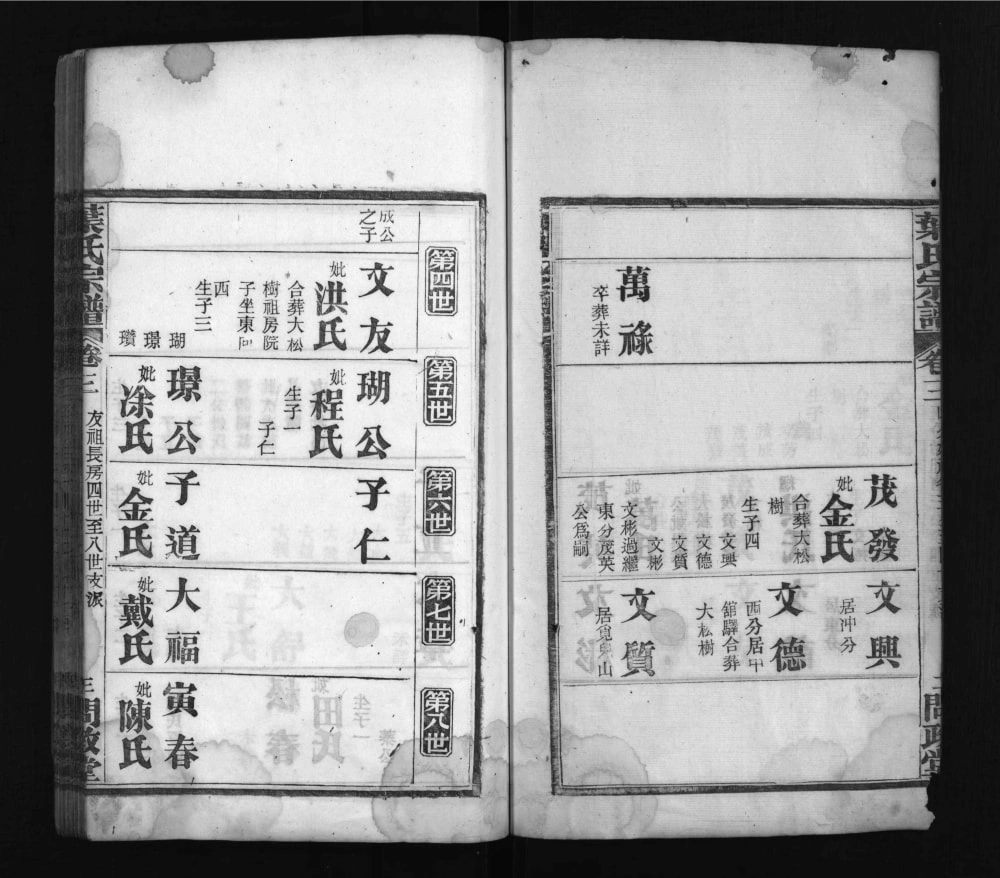 葉氏宗譜
卷三
萬祿
卒葬未詳
茂發
妣金氏
合葬大松
樹
生子四
文興
文德
文質
文彬
文彬過繼
東分茂英
公爲嗣
文興
居冲分
文德
西分居中
舘驛合葬
大松樹
文質
三
問政堂
成公
之子
第四世
第五世
第六世
第七世
第八世
文友
妣洪氏
合葬大松
樹祖房院
子坐東向
西
生子三
瑚
璟
瓚
瑚公
妣程氏
生子
子仁
璟公
妣涂氏
子仁
子道
妣金氏
大福
妣戴氏
寅春
妣陳氏
葉氏宗譜
卷三
友祖長房四世至八世支派
三
問政堂